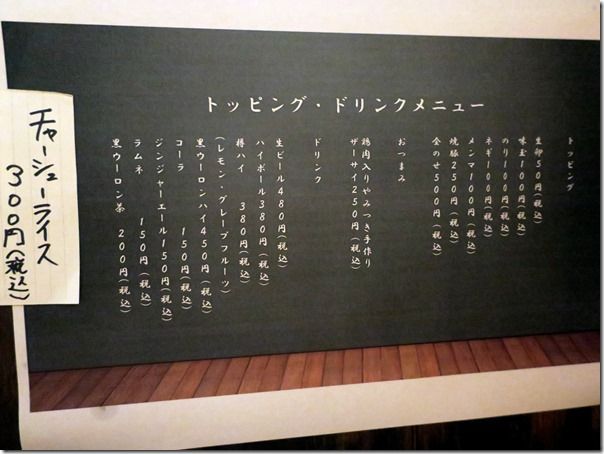 トッピング・ドリンクメニュー
トッピング
生卵50円(税込)
味玉100円(税込)
のり100円(税込)
ネギ100円(税込)
メンマ100円(税込)
焼豚250円(税込)
全のせ500円(税込)
おつまみ
鶏肉入りやみつき手作り
ザーサイ250円(税込)
ドリンク
生ビール480円(税込)
ハイボール380円(税込)
樽ハイ 380円(税込)
(レモン・グレープフルーツ)
黒ウーロンハイ450円(税込)
コーラ 150円(税込)
ジンジャーエール150円(税込)
ラムネ 150円(税込)
黒ウーロン茶 200円(税込)
チャーシューライス
300円(税込)